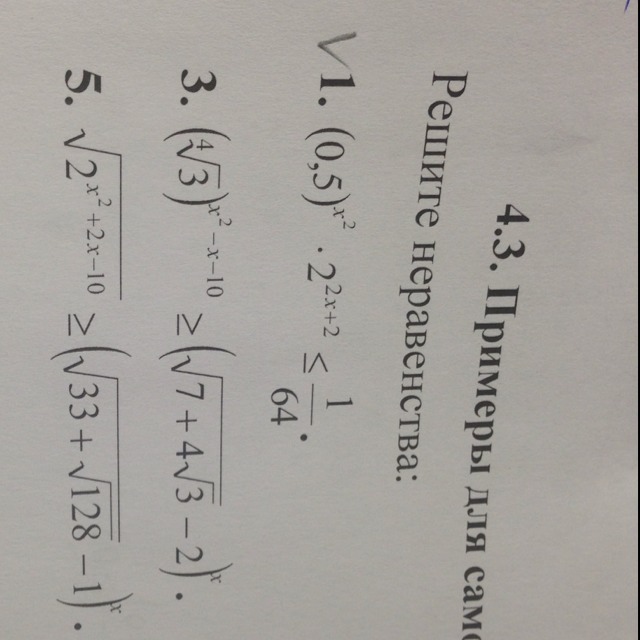 4.3. Примеры для само
Решите неравенства:
1. (0,5)^{x^2} · 2^{2x+2} ≤ 1/64.
3. (∜3)^{x^2−x−10} ≥ (√(7+4√3) − 2)^x.
5. √(2^{x^2+2x−10}) ≥ (√(33+√128) − 1)^x.